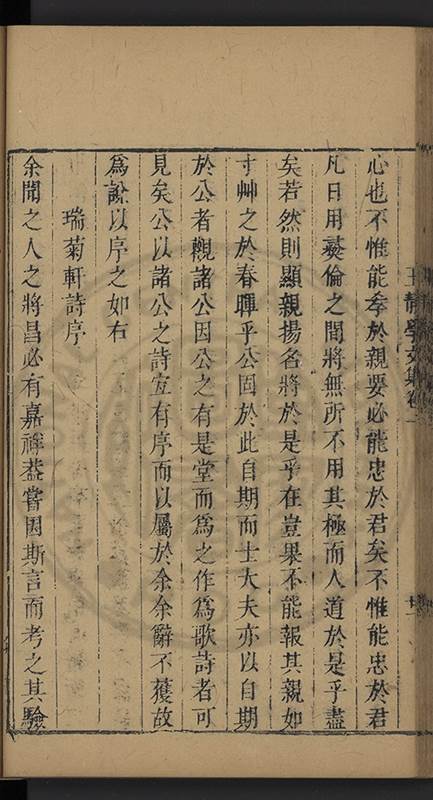 心也不惟能孝於親要必能忠於君矣不惟能忠於君
凡日用彞倫之間將無所不用其極而人道於是乎盡
矣若然則顯親揚名將於是乎在豈果不能報其親如
寸艸之於春暉乎公固於此自期而士大夫亦以自期
於公者觀諸公因公之有是堂而爲之作爲歌詩者可
見矣公以諸公之詩宜有序而以屬於余余辭不獲故
爲說以序之如右
瑞菊軒詩序
余聞之人之將昌必有嘉祥葢嘗因斯言而考之其驗